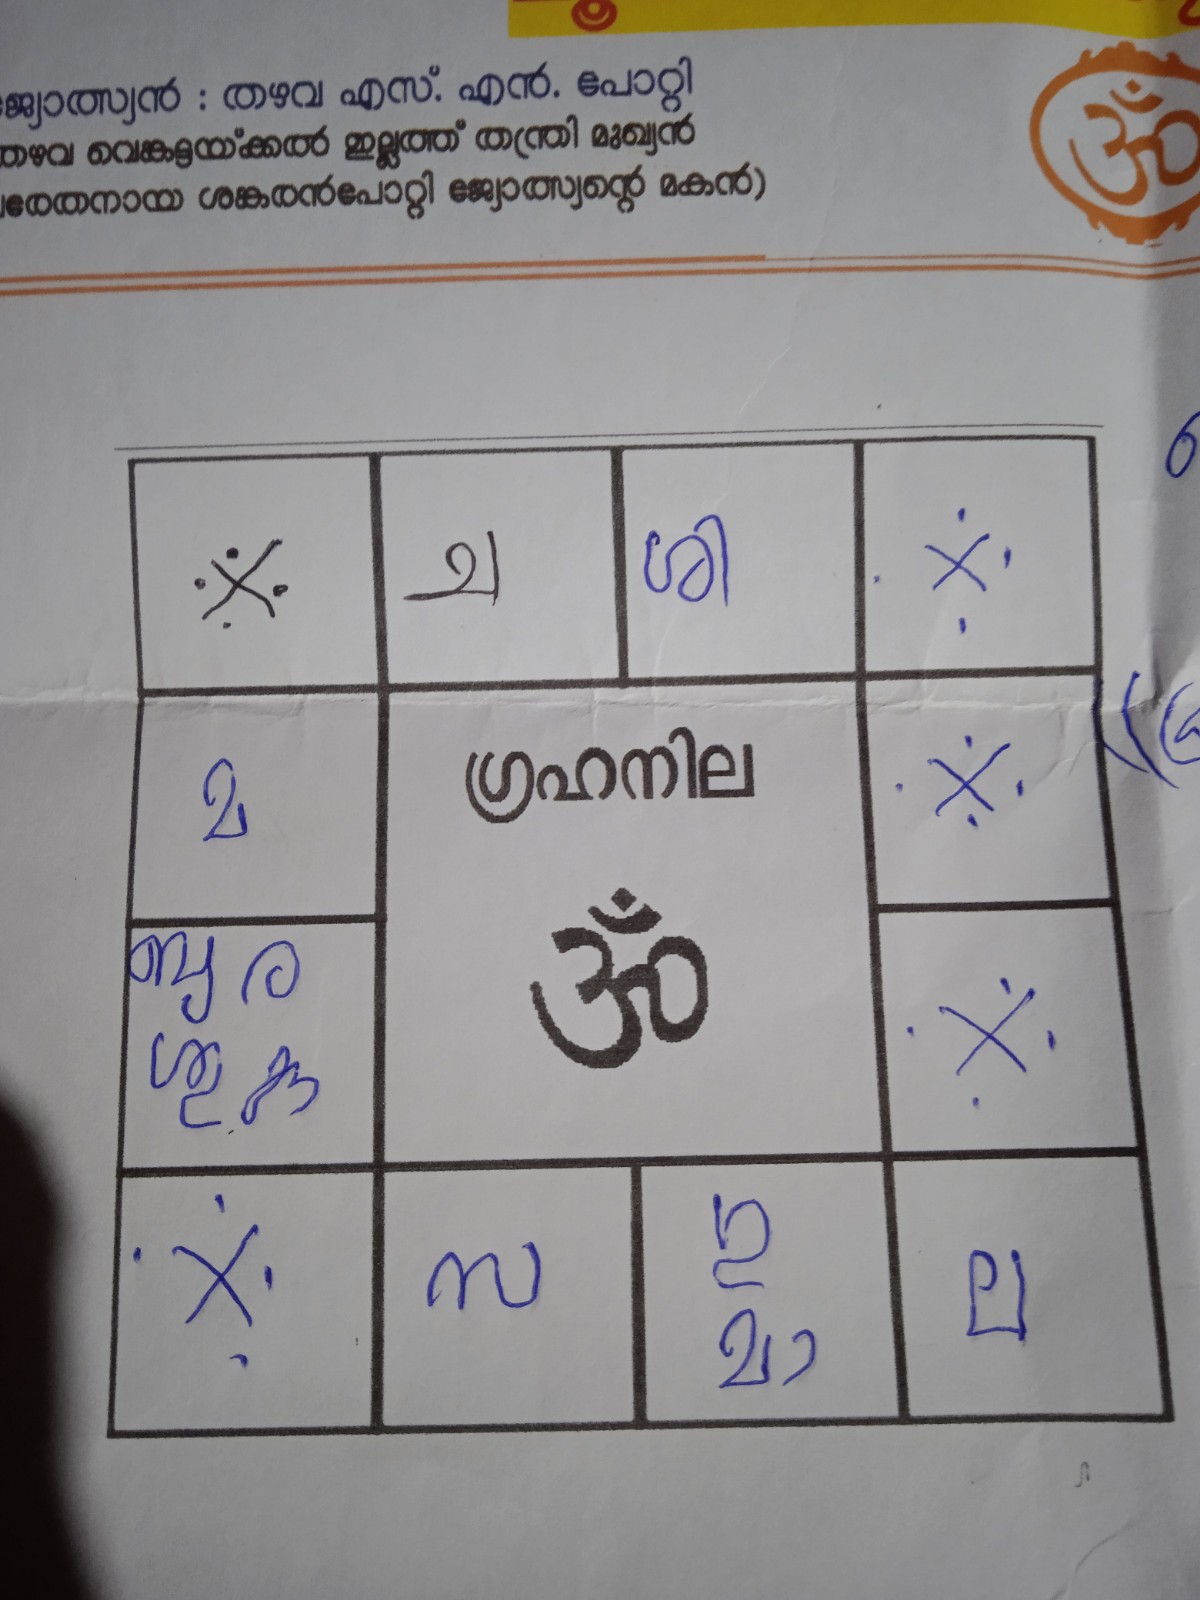 ജ്യോത്സ്യൻ : തഴവ എസ്. എൻ. പോറ്റി
തഴവ വെങ്കട്ടയ്ക്കൽ ഇല്ലത്ത് തന്ത്രി മുഖ്യൻ
പരേതനായ ശങ്കരൻപോറ്റി ജ്യോത്സ്യന്റെ മകൻ)
ച ശി
മ
ഗ്രഹനില
ബു ര
ശു കു
ॐ
സ ഗു ല
മാ